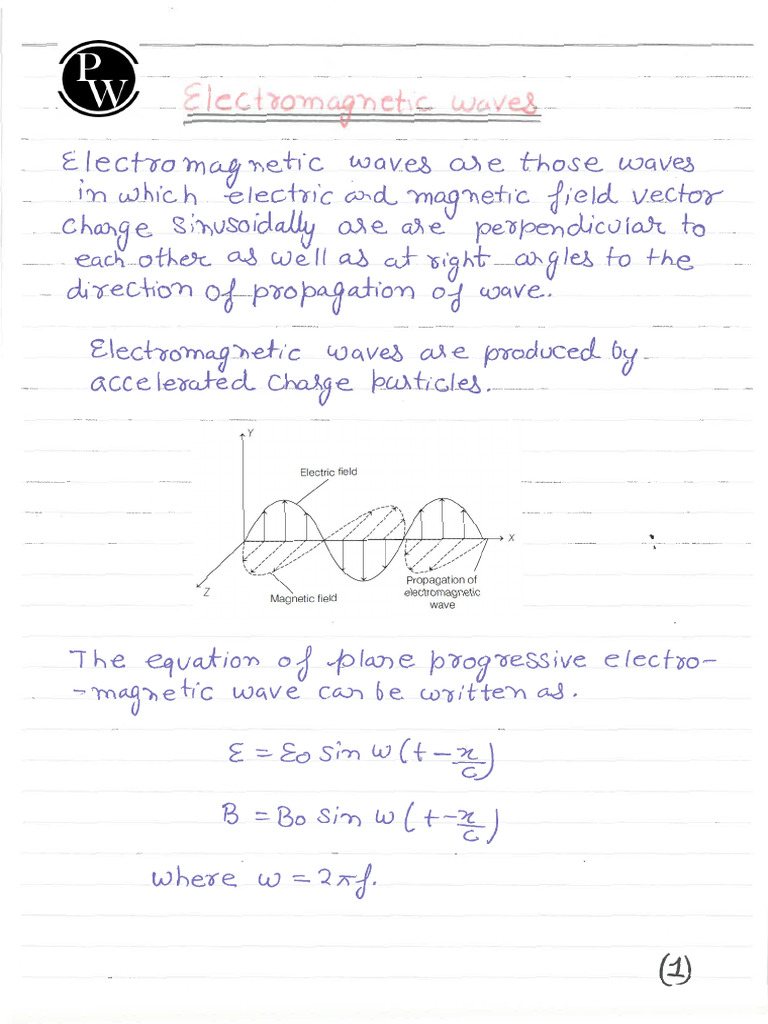 PW
Electromagnetic waves
Electromagnetic waves are those waves
in which electric and magnetic field vector
change sinusoidally are are perpendicular to
each other as well as at right angles to the
direction of propagation of wave.
Electromagnetic waves are produced by
accelerated charge particles.
Y
Electric field
X
Z
Magnetic field
Propagation of
electromagnetic
wave
The equation of plane progressive electro-
-magnetic wave can be written as.
E = E₀ sin w (t - x/c)
B = B₀ sin w (t - x/c)
where w = 2πf.
(1)